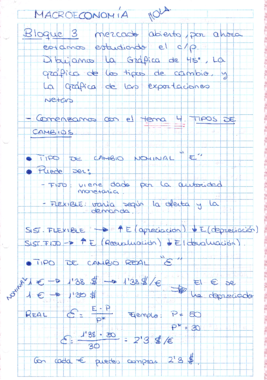 MACROECONOMÍA HOLA
Bloque 3 mercado abierto, por ahora
estamos estudiando el c/p
Dibujamos la Gráfica de 45º, La
gráfica de los tipos de cambio y
La gráfica de las exportaciones
netas
- Comenzamos con el tema 4 TIPOS DE
CAMBIOS.
• TIPO DE CAMBIO NOMINAL "E"
• Puede ser:
- FIJO: viene dado por la autoridad
monetaria
- FLEXIBLE: varía según la oferta y la
demanda
SIST. FLEXIBLE → ↑E (apreciación) ↓E (depreciación)
SIST. FIJO → ↑E (Revaluación) ↓E (devaluación)
• TIPO DE CAMBIO REAL "Ɛ"
NOMINAL
1€ → 1'38 $ → 1'38 $/€ → El € se
1€ → 1'30 $ ha depreciado
REAL Ɛ = E·P / P* Ejemplo: P = 50
P* = 30
Ɛ = 1'38 · 50 / 30 = 2'3 $/€
Con cada € puedes comprar 2'3 $.